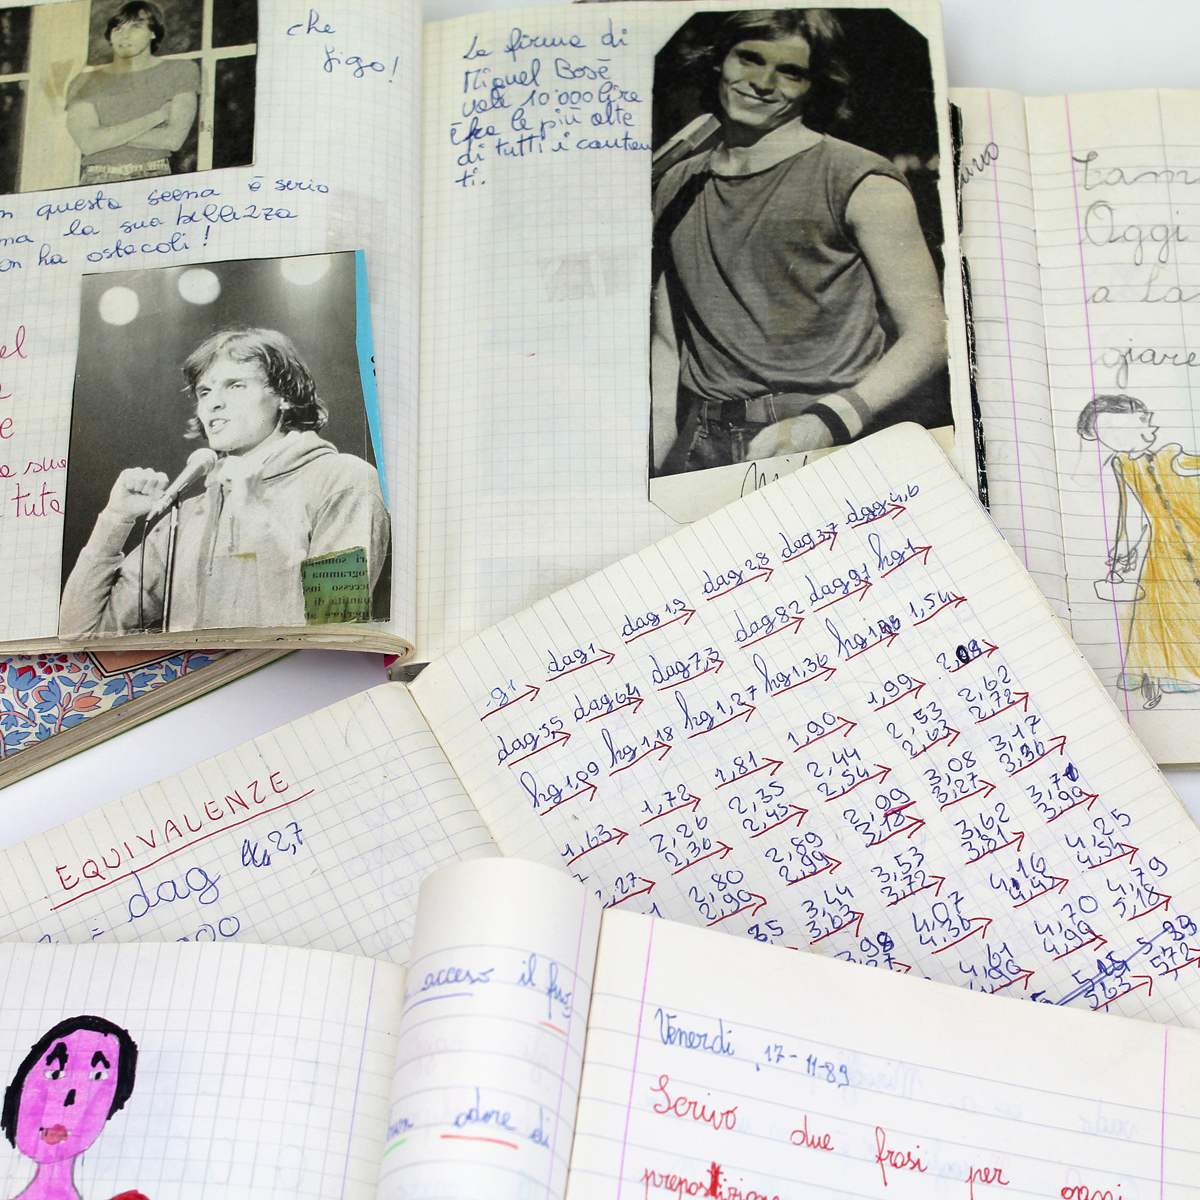 che
figo!
questa scena è serio
ma la sua bellezza
on ha ostacoli!
el
e
a sua
tute
La firma di
Miguel Bosé
vale 10'000 lire
è fra le più alte
di tutti i cantan
ti.
Oggi
a La
giare
EQUIVALENZE
dag 2,7
g 1 dag 1 dag 1,9 dag 2,8 dag 3,7 dag 4,6
dag 5,5 dag 6,4 dag 7,3 dag 8,2 dag 9,1 hg 1
hg 1,09 hg 1,18 hg 1,27 hg 1,36 hg 1,45 1,54
1,63 1,72 1,81 1,90 1,99 2,08
2,26 2,35 2,44 2,53 2,62
2,27 2,36 2,45 2,54 2,63 2,72
2,80 2,89 2,99 3,08 3,17
2,90 2,99 3,18 3,27 3,36
3,44 3,53 3,62 3,71
3,63 3,72 3,81 3,90
4,07 4,16 4,25
4,36 4,45 4,54
4,61 4,70 4,79
4,90 4,99 5,18
5,63 5,72
acceso il
odore di
Venerdì 17-11-89
Scrivo due frasi per ogni
preposizione